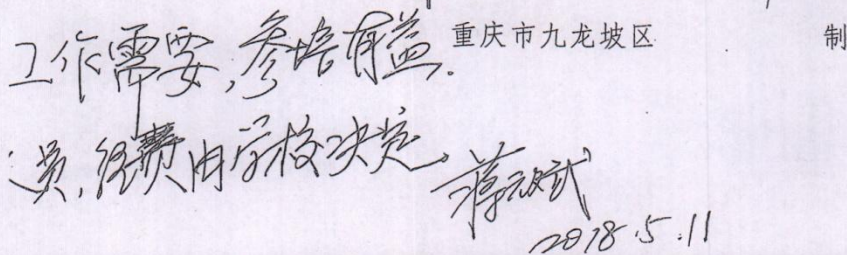 工作需要,参培有益.
重庆市九龙坡区 制
员,经费由学校决定.
2018.5.11